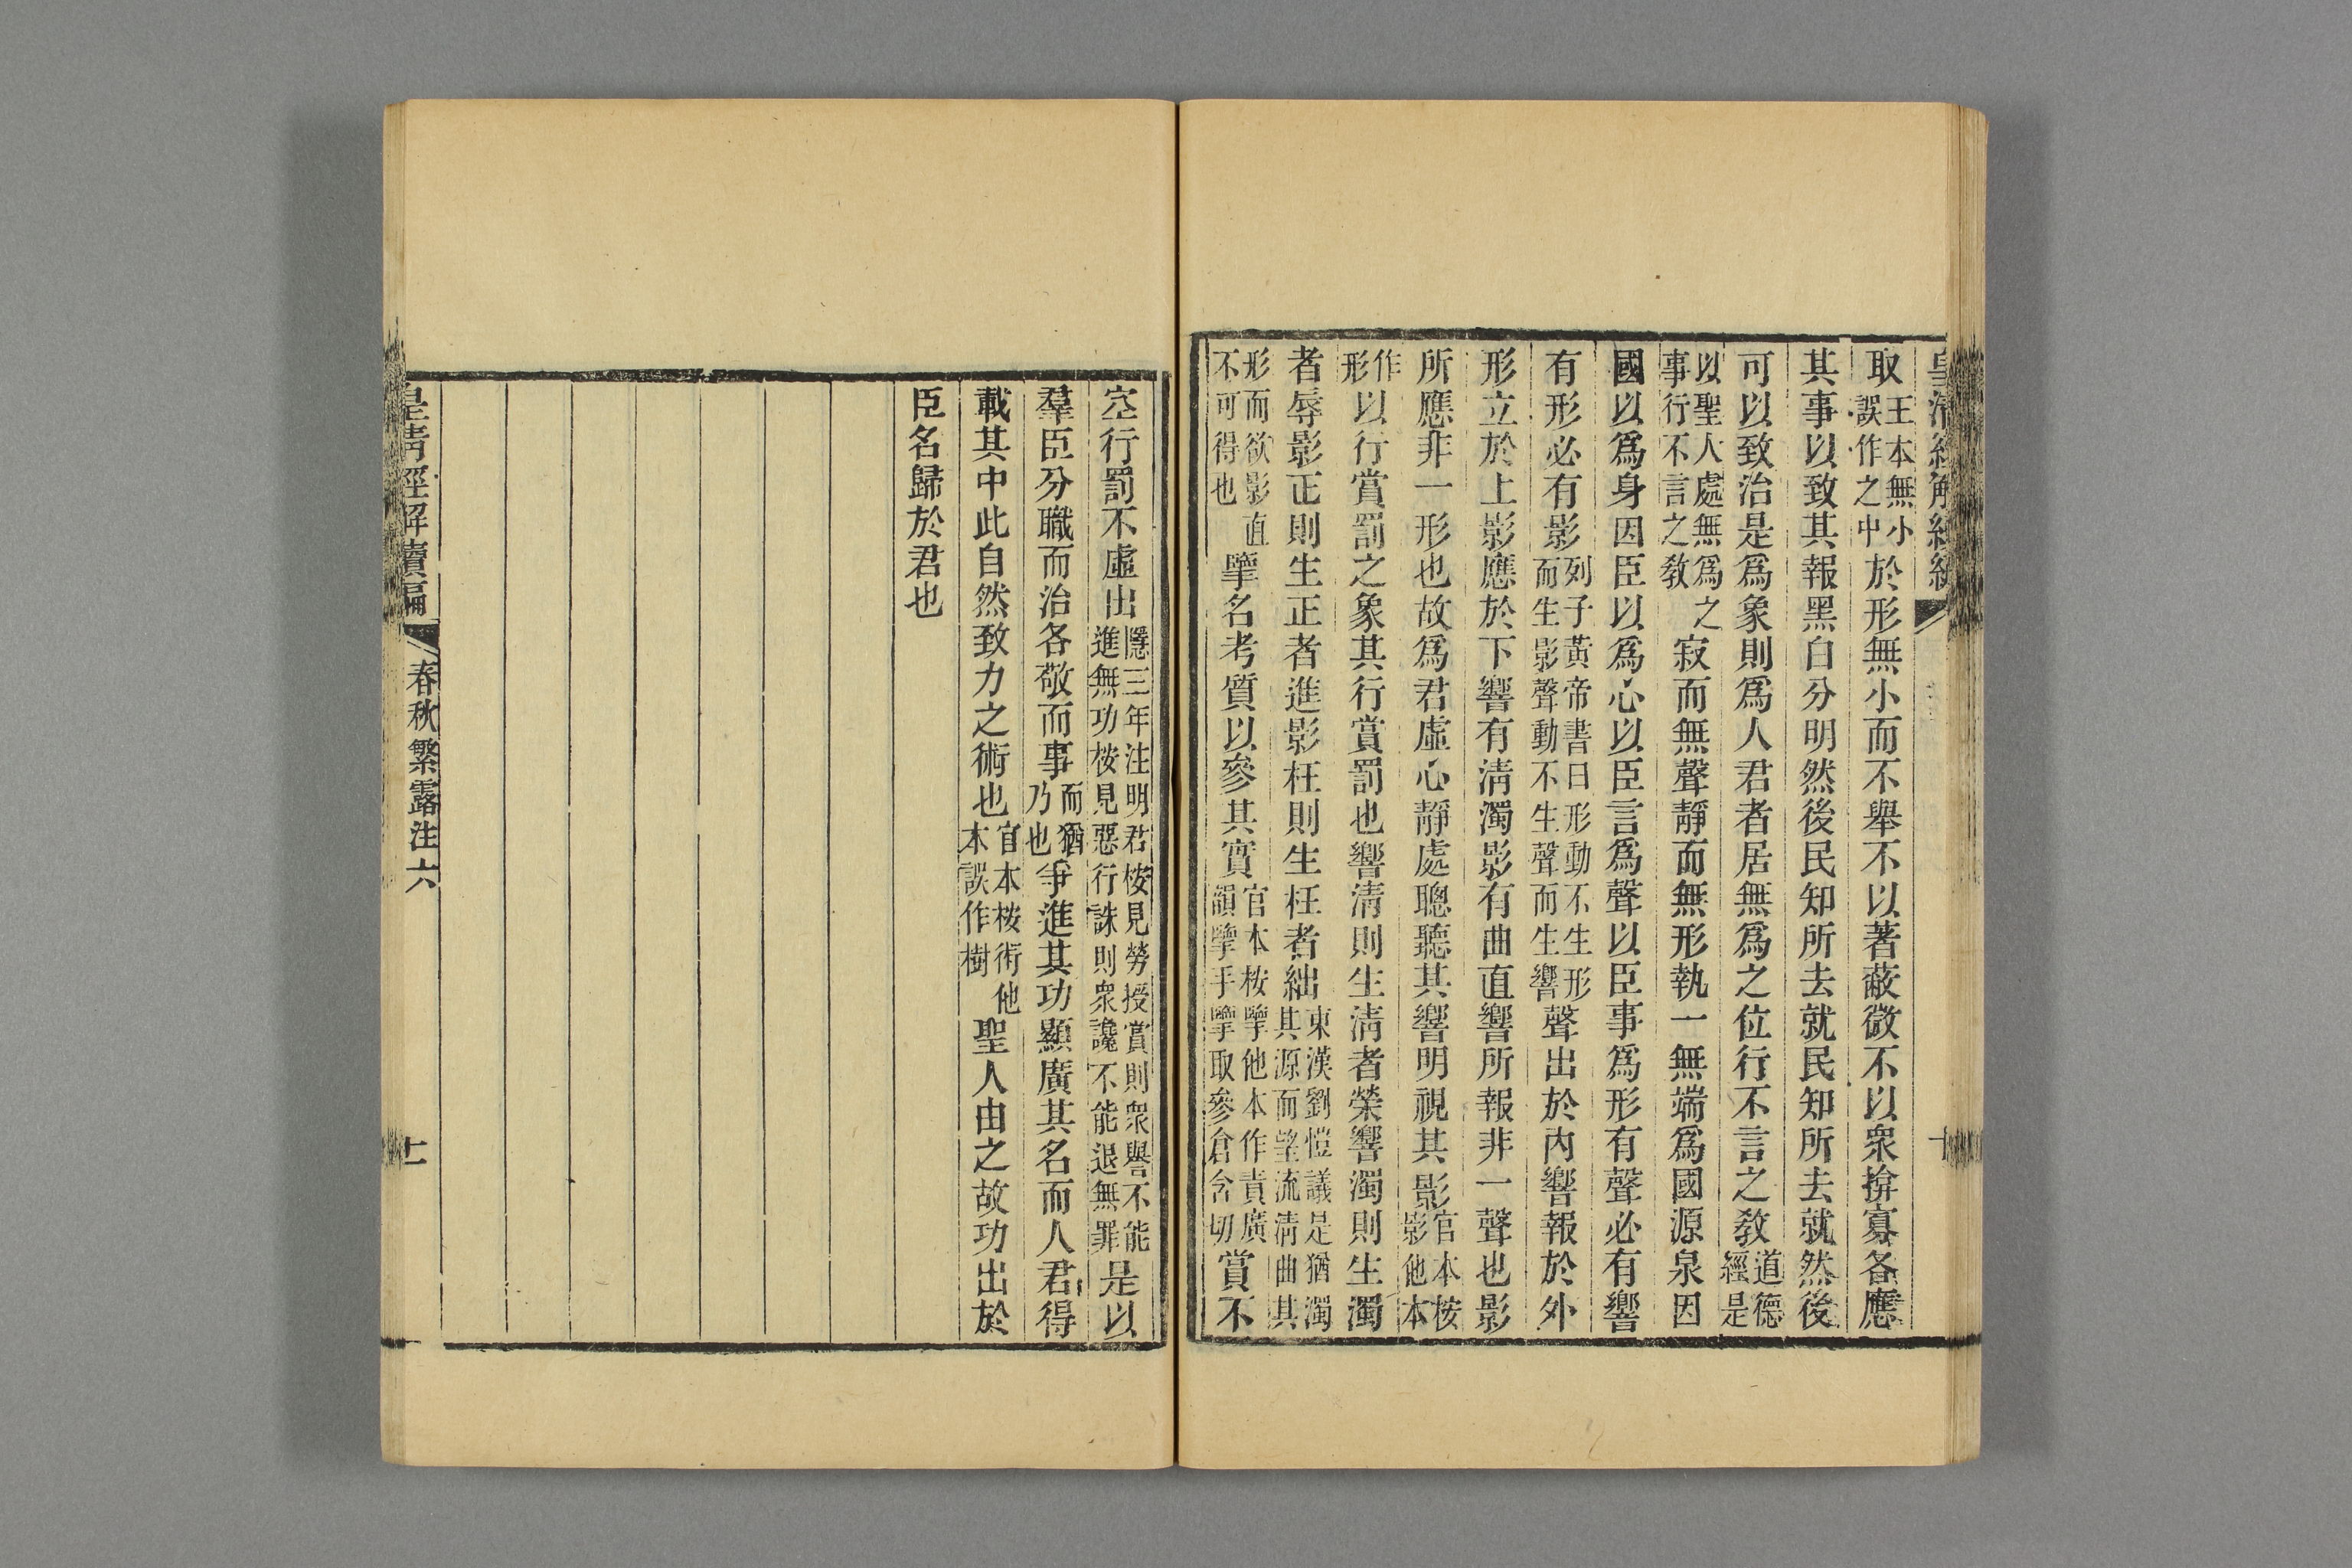 皇清經解續編
取王本無小誤作之中於形無小而不舉不以著蔽微不以衆揜寡各應
其事以致其報黑白分明然後民知所去就民知所去就然後
可以致治是爲象則爲人君者居無爲之位行不言之敎道德經是
以聖人處無爲之事行不言之敎寂而無聲靜而無形執一無端爲國源泉因
國以爲身因臣以爲心以臣言爲聲以臣事爲形有聲必有響
有形必有影列子黃帝書曰形動不生形而生影聲動不生聲而生響聲出於內響報於外
形立於上影應於下響有淸濁影有曲直響所報非一聲也影
所應非一形也故爲君虛心靜處聰聽其響明視其影官本桉影他本
作形以行賞罰之象其行賞罰也響淸則生淸者榮響濁則生濁
者辱影正則生正者進影枉則生枉者絀東漢劉愷議是猶濁其源而望流淸曲其
形而欲影直不可得也擥名考質以參其實官本桉擥他本作責廣韻擥手擥取參倉含切賞不
空行罰不虛出隱三年注明君桉見勞授賞則衆譽不能進無功桉見惡行誅則衆讒不能退無罪是以
羣臣分職而治各敬而事而猶乃也爭進其功顯廣其名而人君得
載其中此自然致力之術也官本桉術他本誤作樹聖人由之故功出於
臣名歸於君也
皇淸經解續編
春秋繁露注六
十一